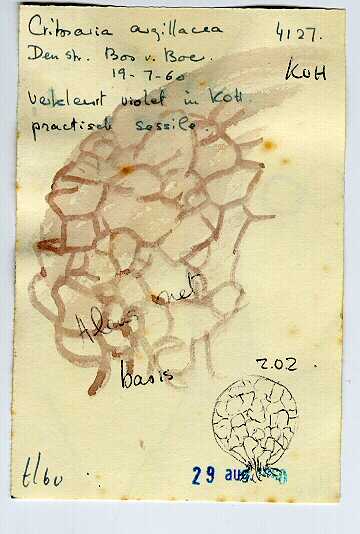 Cribraria argillacea 4127.
Den str. Bos v. Boe. KOH
19-7-60
verkleurt violet in KOH.
practisch sessile.
Alleen net
basis
2.02
t/60
29 aug